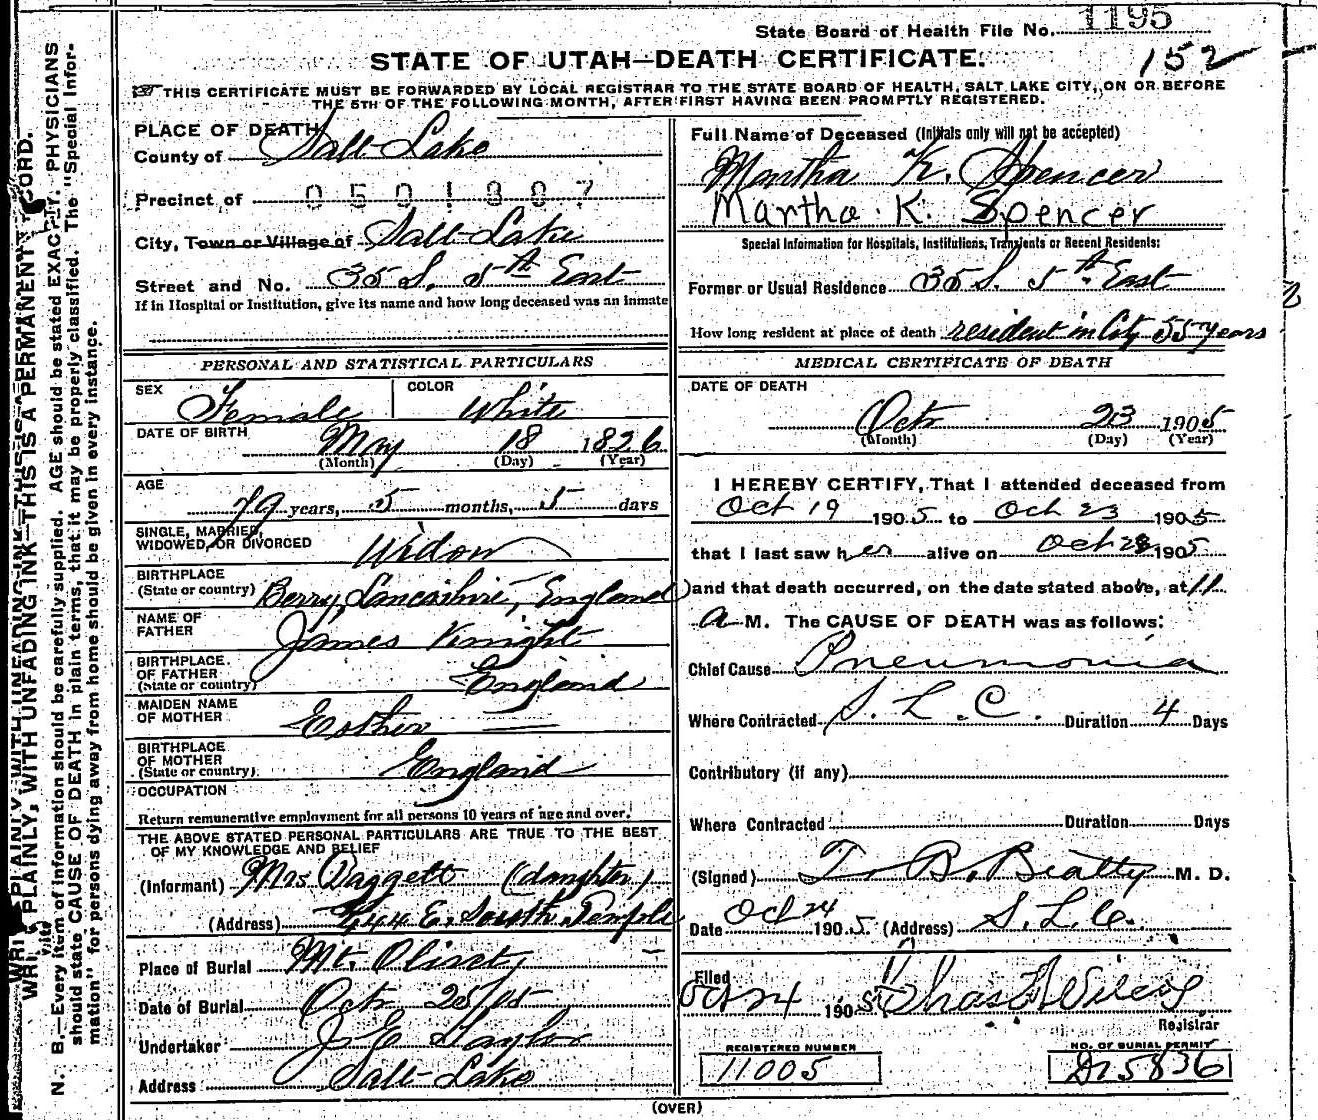 State Board of Health File No. 1195
152
STATE OF UTAH—DEATH CERTIFICATE.
THIS CERTIFICATE MUST BE FORWARDED BY LOCAL REGISTRAR TO THE STATE BOARD OF HEALTH, SALT LAKE CITY, ON OR BEFORE
THE 5TH OF THE FOLLOWING MONTH, AFTER FIRST HAVING BEEN PROMPTLY REGISTERED.
PLACE OF DEATH
County of Salt Lake
Precinct of 0501807
City, Town or Village of Salt Lake
Street and No. 35 S. 5th East
If in Hospital or Institution, give its name and how long deceased was an inmate
Full Name of Deceased (Initials only will not be accepted)
Martha K. Spencer
Martha K. Spencer
Special Information for Hospitals, Institutions, Transients or Recent Residents:
Former or Usual Residence 35 S. 5th East
How long resident at place of death resident in City 55 years
PERSONAL AND STATISTICAL PARTICULARS
SEX Female
COLOR White
DATE OF BIRTH May 18 1826
(Month) (Day) (Year)
AGE
79 years, 5 months, 5 days
SINGLE, MARRIED,
WIDOWED, OR DIVORCED Widow
BIRTHPLACE
(State or country) Berry, Lancashire, England
NAME OF
FATHER James Knight
BIRTHPLACE
OF FATHER
(State or country) England
MAIDEN NAME
OF MOTHER Esther
BIRTHPLACE
OF MOTHER
(State or country) England
OCCUPATION
Return remunerative employment for all persons 10 years of age and over.
THE ABOVE STATED PERSONAL PARTICULARS ARE TRUE TO THE BEST
OF MY KNOWLEDGE AND BELIEF
(Informant) Mrs Daggett (daughter)
(Address) 444 E. South Temple
Place of Burial Mt. Olivet
Date of Burial Oct 25/05
Undertaker J. E. Taylor
Address Salt Lake
MEDICAL CERTIFICATE OF DEATH
DATE OF DEATH
Oct 23 1905
(Month) (Day) (Year)
I HEREBY CERTIFY, That I attended deceased from
Oct 19 1905 to Oct 23 1905
that I last saw her alive on Oct 23 1905
and that death occurred, on the date stated above, at 11
A M. The CAUSE OF DEATH was as follows:
Chief Cause Pneumonia
Where Contracted S. L. C. Duration 4 Days
Contributory (if any)
Where Contracted Duration Days
(Signed) T. B. Beatty M. D.
Date Oct 24 1905 (Address) S. L. C.
Filed
Oct 24 1905
Registrar
REGISTERED NUMBER
11005
NO. OF BURIAL PERMIT
5836
(OVER)
WRITE PLAINLY, WITH UNFADING INK—THIS IS A PERMANENT RECORD.
N. B.—Every item of information should be carefully supplied. AGE should be stated EXACTLY. PHYSICIANS
should state CAUSE OF DEATH in plain terms, that it may be properly classified. The "Special Infor-
mation" for persons dying away from home should be given in every instance.